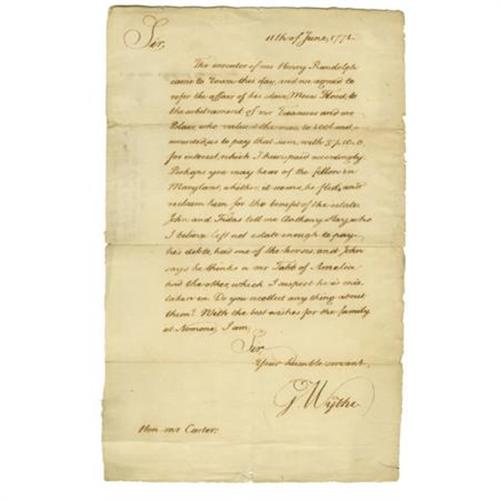 11th of June, 1772.
Sir,
The executor of mr Henry Randolph
came to town this day, and we agreed to
refer the affair of his slave, Moses Flood, to
the arbitrament of mr and mr
Blair, who valued the man to 100l and
awarded us to pay that sum, with
for interest, which I have paid accordingly.
Perhaps you may hear of the fellow in
Maryland, whither, it seems, he fled, and
reclaim him for the benefit of the estate.
John and tell me Anthony Hay, who
I believe left not estate enough to pay
his debts, has one of the horses, and John
says he thinks a mr Tabb of Amelia
had the other, which I suspect he is mis
taken in. Do you recollect any thing about
them? With the best wishes for the family
at Nomony, I am,
Sir,
Your humble servant,
G. Wythe
Hon. mr Carter.